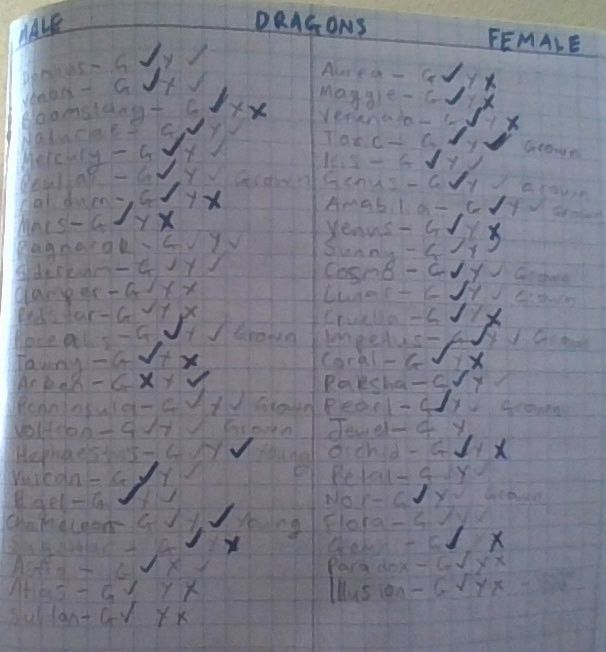 MALE DRAGONS FEMALE
Dominus - G ✓ Y ✓
Venom - G ✓ Y ✓
Boomslang - G ✓ Y X
Naturae - G ✓ Y ✓
Mercury - G ✓ Y ✓
G ✓ Y ✓ Grown
Calidum - G ✓ Y X
Mars - G ✓ Y X
Ragnarok - G ✓ Y ✓
Sidereum - G ✓ Y ✓
Clamper - G ✓ Y X
G ✓ Y X
Borealis - G ✓ Y ✓ Grown
Tawny - G ✓ Y X
G X Y ✓
Penninsula - G ✓ Y ✓ Grown
Voltron - G ✓ Y ✓ Grown
Hephaestus - G ✓ Y ✓ Young
Vulcan - G ✓ Y ✓
Rigel - G ✓ Y ✓
Chameleon - G ✓ Y ✓ Young
G ✓ Y X
G ✓ Y ✓
Atlas - G ✓ Y X
Sultan - G ✓ Y X
Aurea - G ✓ Y X
Maggie - G ✓ Y X
Venenata - G ✓ Y X
Toxic - G ✓ Y ✓ Grown
G ✓ Y ✓
Genus - G ✓ Y ✓ Grown
Amabilia - G ✓ Y ✓ Grown
Venus - G ✓ Y X
Sunny - G ✓ Y ✓
Cosmo - G ✓ Y ✓ Grown
Lunar - G ✓ Y ✓ Grown
Cruella - G ✓ Y X
Impetus - G ✓ Y ✓ Grown
Coral - G ✓ Y X
Paksha - G ✓ Y ✓
Pearl - G ✓ Y ✓ Grown
Jewel - G Y
Orchid - G ✓ Y X
Petal - G ✓ Y ✓
Nor - G ✓ Y ✓ Grown
Flora - G ✓ Y ✓
G ✓ Y X
Paradox - G ✓ Y X
Illusion - G ✓ Y X